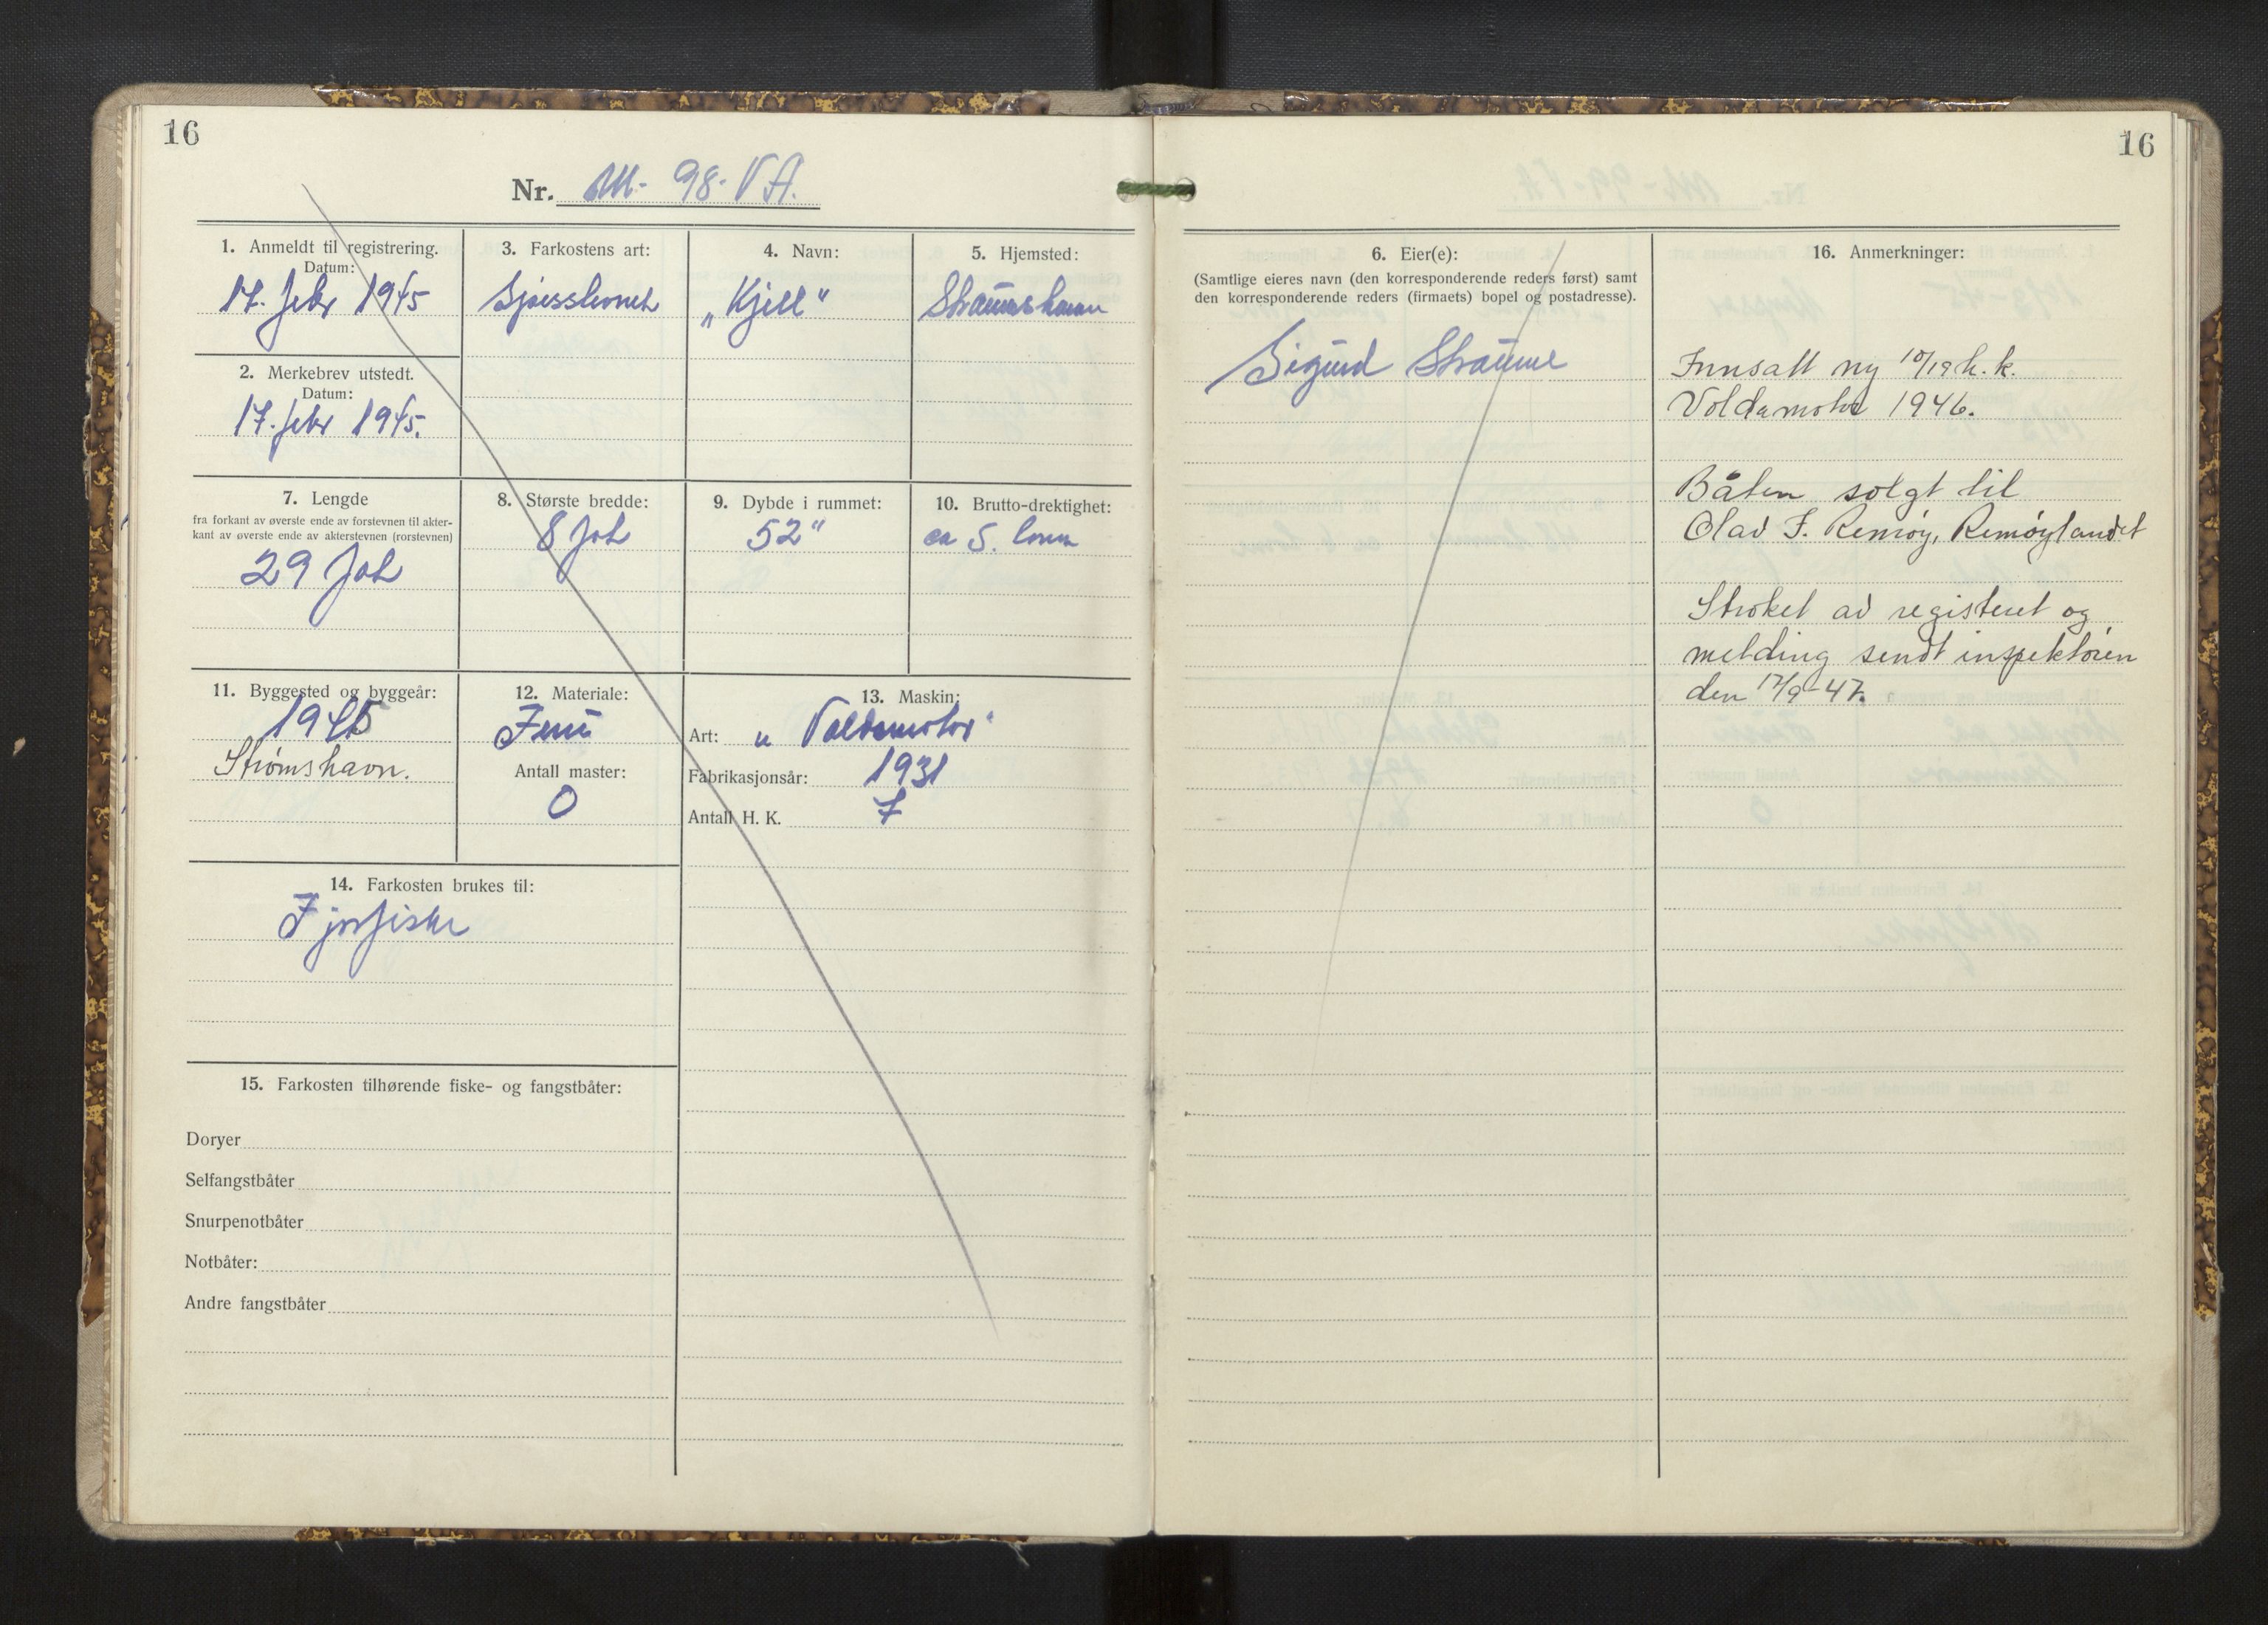 16
Nr. M- 98- VA.
1. Anmeldt til registrering.
Datum:
17. febr 1945
2. Merkebrev utstedt.
Datum:
17. febr 1945.
3. Farkostens art:
4. Navn:
„Kjell“
5. Hjemsted:
7. Lengde
fra forkant av øverste ende av forstevnen til akter-
kant av øverste ende av akterstevnen (rorstevnen)
29 fot
8. Største bredde:
8 fot
9. Dybde i rummet:
52"
10. Brutto-drektighet:
ca 5. tonn
11. Byggested og byggeår:
1945
Strømshavn.
12. Materiale:
Furu
Antall master:
0
13. Maskin:
Art: „ Voldamotor“
Fabrikasjonsår: 1931
Antall H. K. 7
14. Farkosten brukes til:
15. Farkosten tilhørende fiske- og fangstbåter:
Doryer
Selfangstbåter
Snurpenotbåter
Notbåter:
Andre fangstbåter
16
6. Eier(e):
(Samtlige eieres navn (den korresponderende reders først) samt
den korresponderende reders (firmaets) bopel og postadresse).
Sigurd Straume
16. Anmerkninger:
Innsatt ny 10/12 h.k.
Voldamotor 1946.
Båten solgt til
Olav J. Remøy, Remøylandet
Strøket av registeret og
melding sendt inspektøren
den 17/9-47.